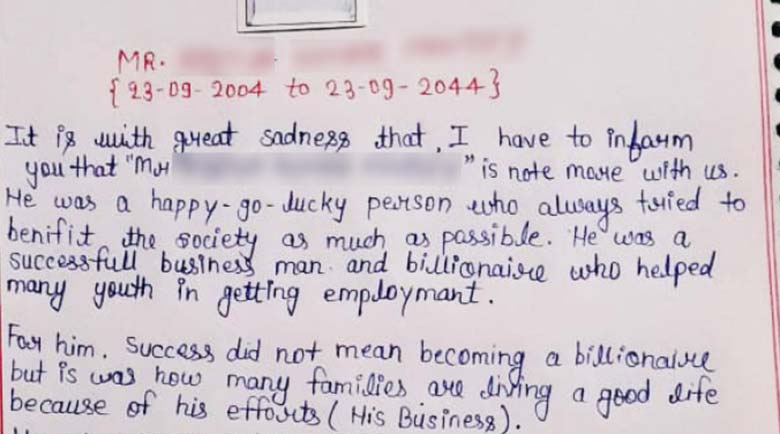 MR.
{23-09-2004 to 23-09-2044}
It is with great sadness that, I have to inform
you that "Mr " is note more with us.
He was a happy-go-lucky person who always tried to
benifit the society as much as passible. He was a
successfull business man and billionaire who helped
many youth in getting employmant.
For him, Success did not mean becoming a billionaire
but is was how many families are living a good life
because of his efforts (His Business).